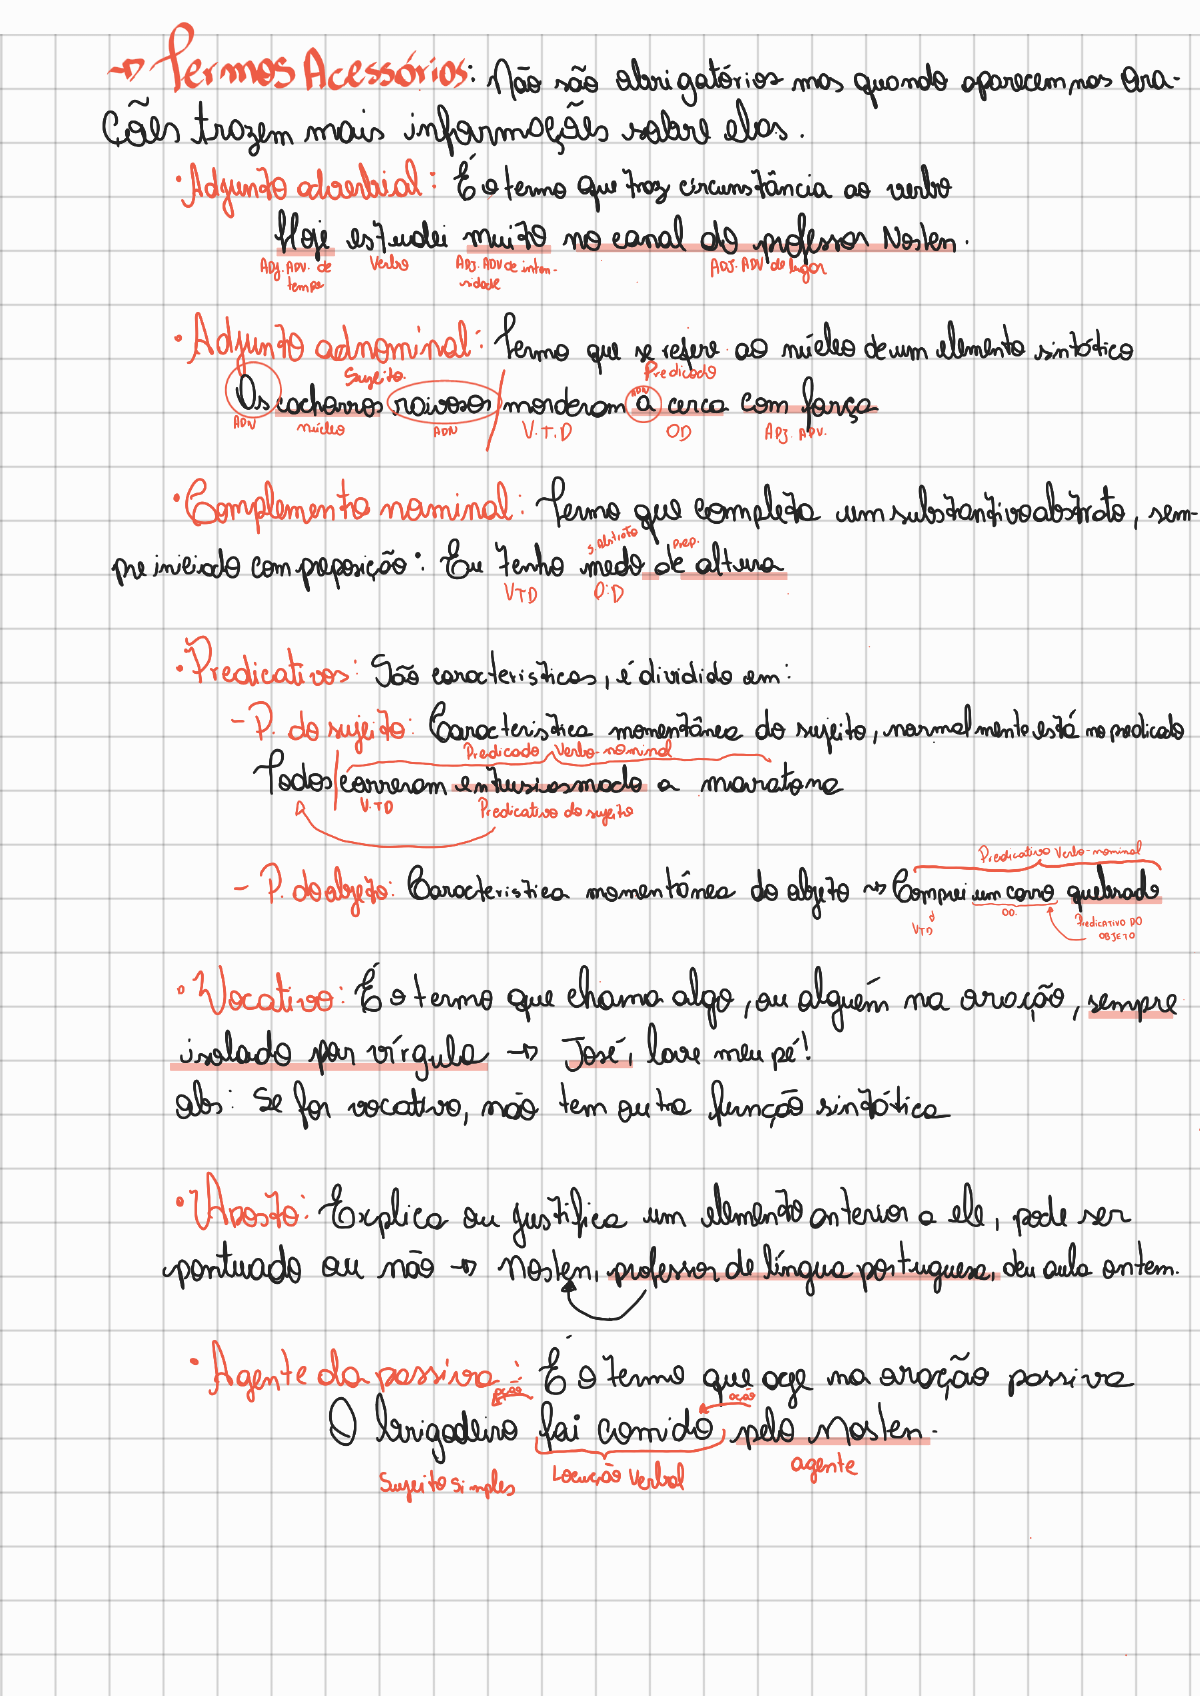 → Termos Acessórios: Não são obrigatórios mas quando aparecem nas ora-
ções trazem mais informações sobre elas.
• Adjunto adverbial: É o termo que traz circunstância ao verbo
Hoje estudei muito no canal do professor Nosten.
ADJ. ADV. de tempo Verbo ADJ. ADV de inten-sidade ADJ. ADV de lugar
• Adjunto adnominal: Termo que se refere ao núcleo de um elemento sintático
Sujeito Predicado
ADN
Os cachorros raivosos / morderam a cerca com força
ADN núcleo ADN V.T.D OD ADJ. ADV.
• Complemento nominal: Termo que completa um substantivo abstrato, sem-
S. Abstrato prep.
pre iniciado com preposição: Eu tenho medo de altura
VTD O.D
• Predicativos: São caracteristicas, é dividido em:
- P. do sujeito: Caracteristica momentânea do sujeito, normalmente está no predicado
Predicado Verbo-nominal
Todos / correram entusiasmado a maratona
V.TD Predicativo do sujeito
Predicativo Verbo-nominal
- P. do objeto: Caracteristica momentânea do objeto → Comprei um carro quebrado
VTD OD. PREDICATIVO DO OBJETO
• Vocativo: É o termo que chama algo, ou alguém na oração, sempre
isolado por vírgula → José, lave meu pé!
obs: Se for vocativo, não tem outra função sintática
• Aposto: Explica ou justifica um elemento anterior a ele, pode ser
pontuado ou não → Nosten, professor de língua portuguesa, deu aula ontem.
• Agente da passiva: É o termo que age na oração passiva
ação ação
O brigadeiro foi comido pelo Nosten.
Sujeito simples Locução Verbal agente